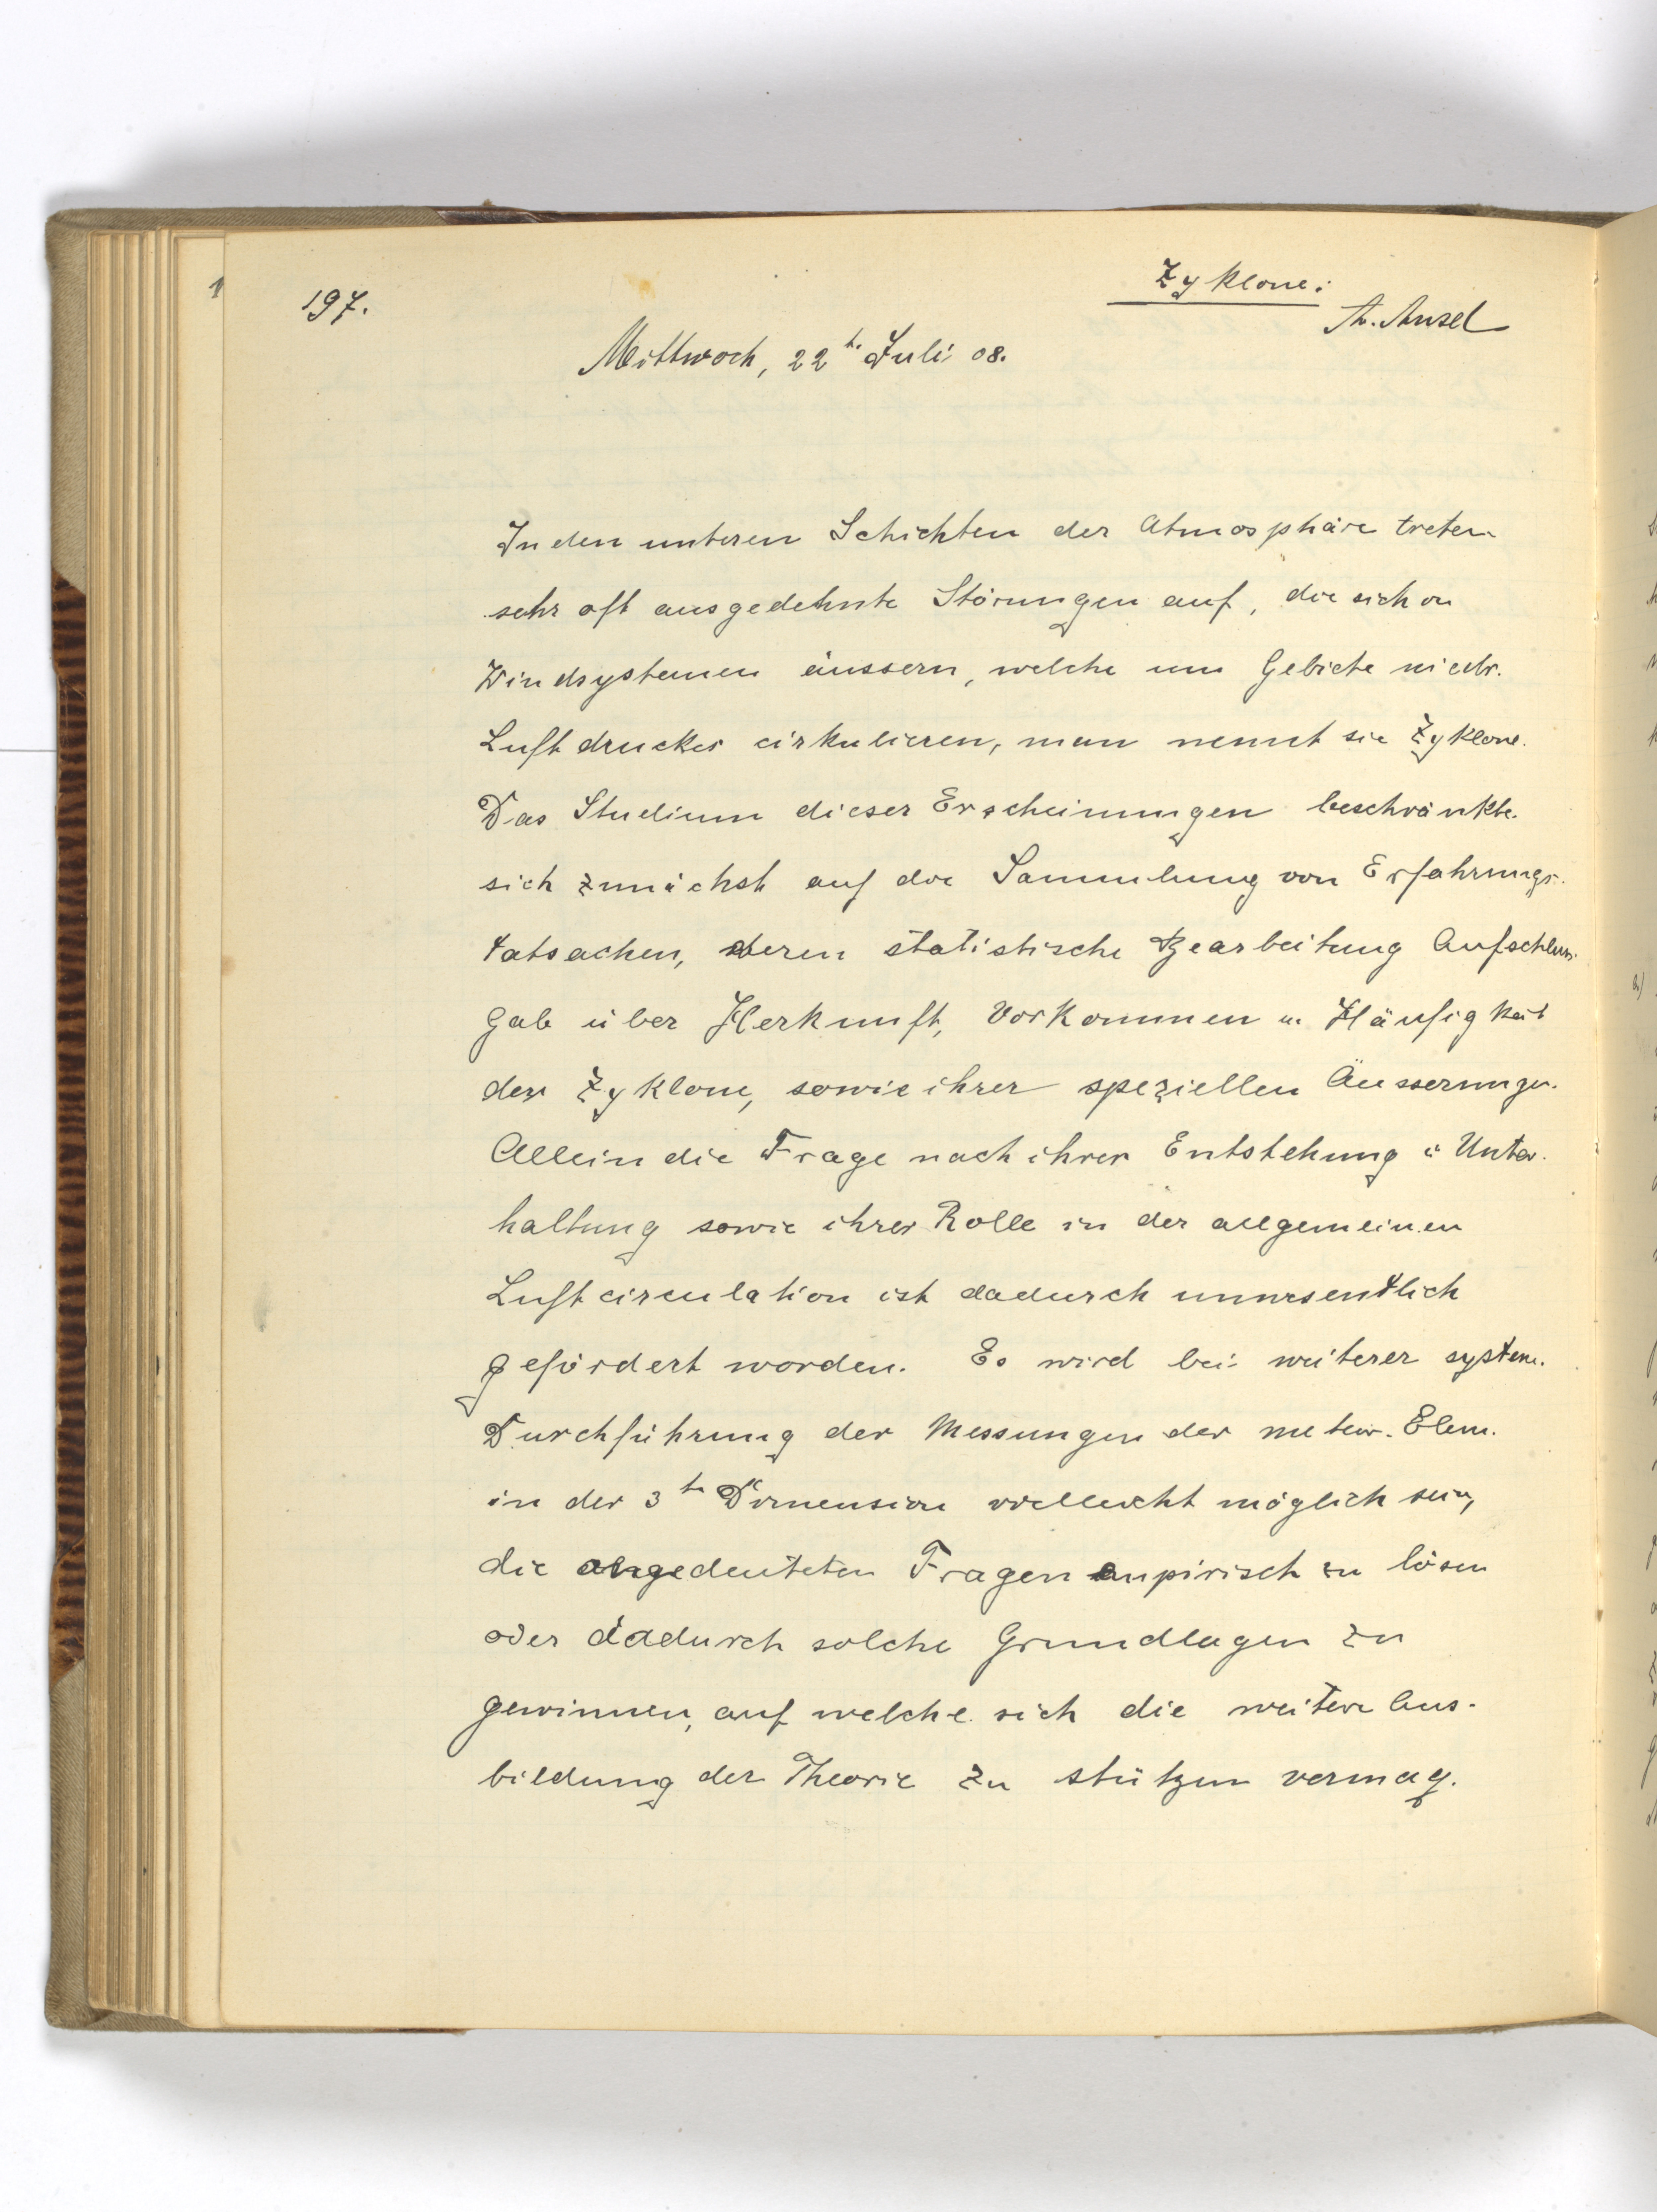 197.
Zyklone:
A. Ansel
Mittwoch, 22t. Juli 08.
In den unteren Schichten der Atmosphäre treten
sehr oft ausgedehnte Störungen auf, die sich in
Windsystemen äussern, welche um Gebiete niedr.
Luftdruckes cirkulieren, man nennt sie Zyklone.
Das Studium dieser Erscheinungen beschränkte
sich zunächst auf die Sammlung von Erfahrungs-
tatsachen, deren statistische Bearbeitung Aufschluss
gab über Herkunft, Vorkommen u. Häufigkeit
der Zyklone, sowie ihrer speziellen Äusserungen.
Allein die Frage nach ihrer Entstehung u. Unter-
haltung sowie ihrer Rolle in der allgemeinen
Luftcirculation ist dadurch unwesentlich
gefördert worden. Es wird bei weiterer system.
Durchführung der Messungen der meteor. Elem.
in der 3tn Dimension vielleicht möglich sein,
die angedeuteten Fragen empirisch zu lösen
oder dadurch solche Grundlagen zu
gewinnen, auf welche sich die weitere Aus-
bildung der Theorie zu stützen vermag.